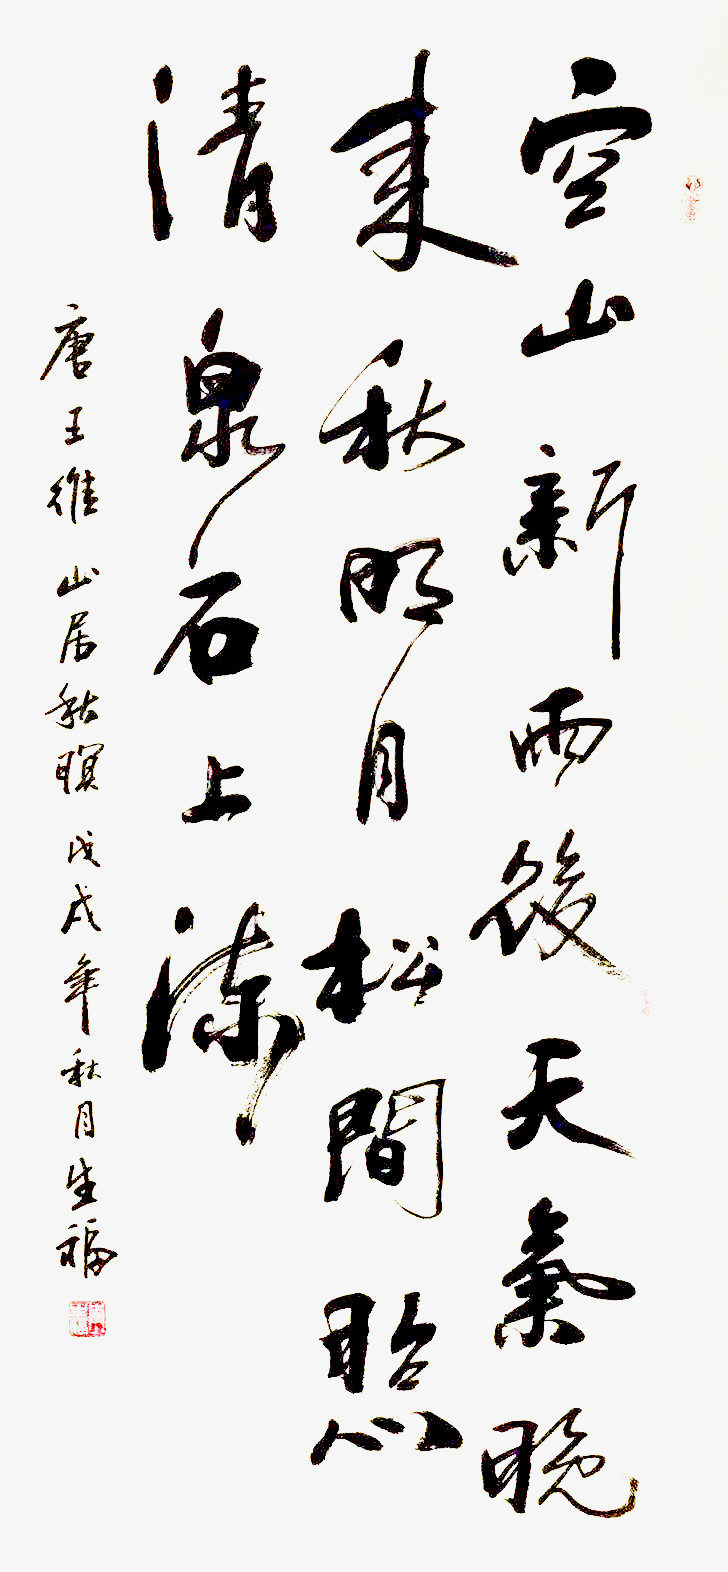 空山新雨後天氣晚
来秋明月松間照
清泉石上流
唐王維山居秋暝戊戌年秋月生福